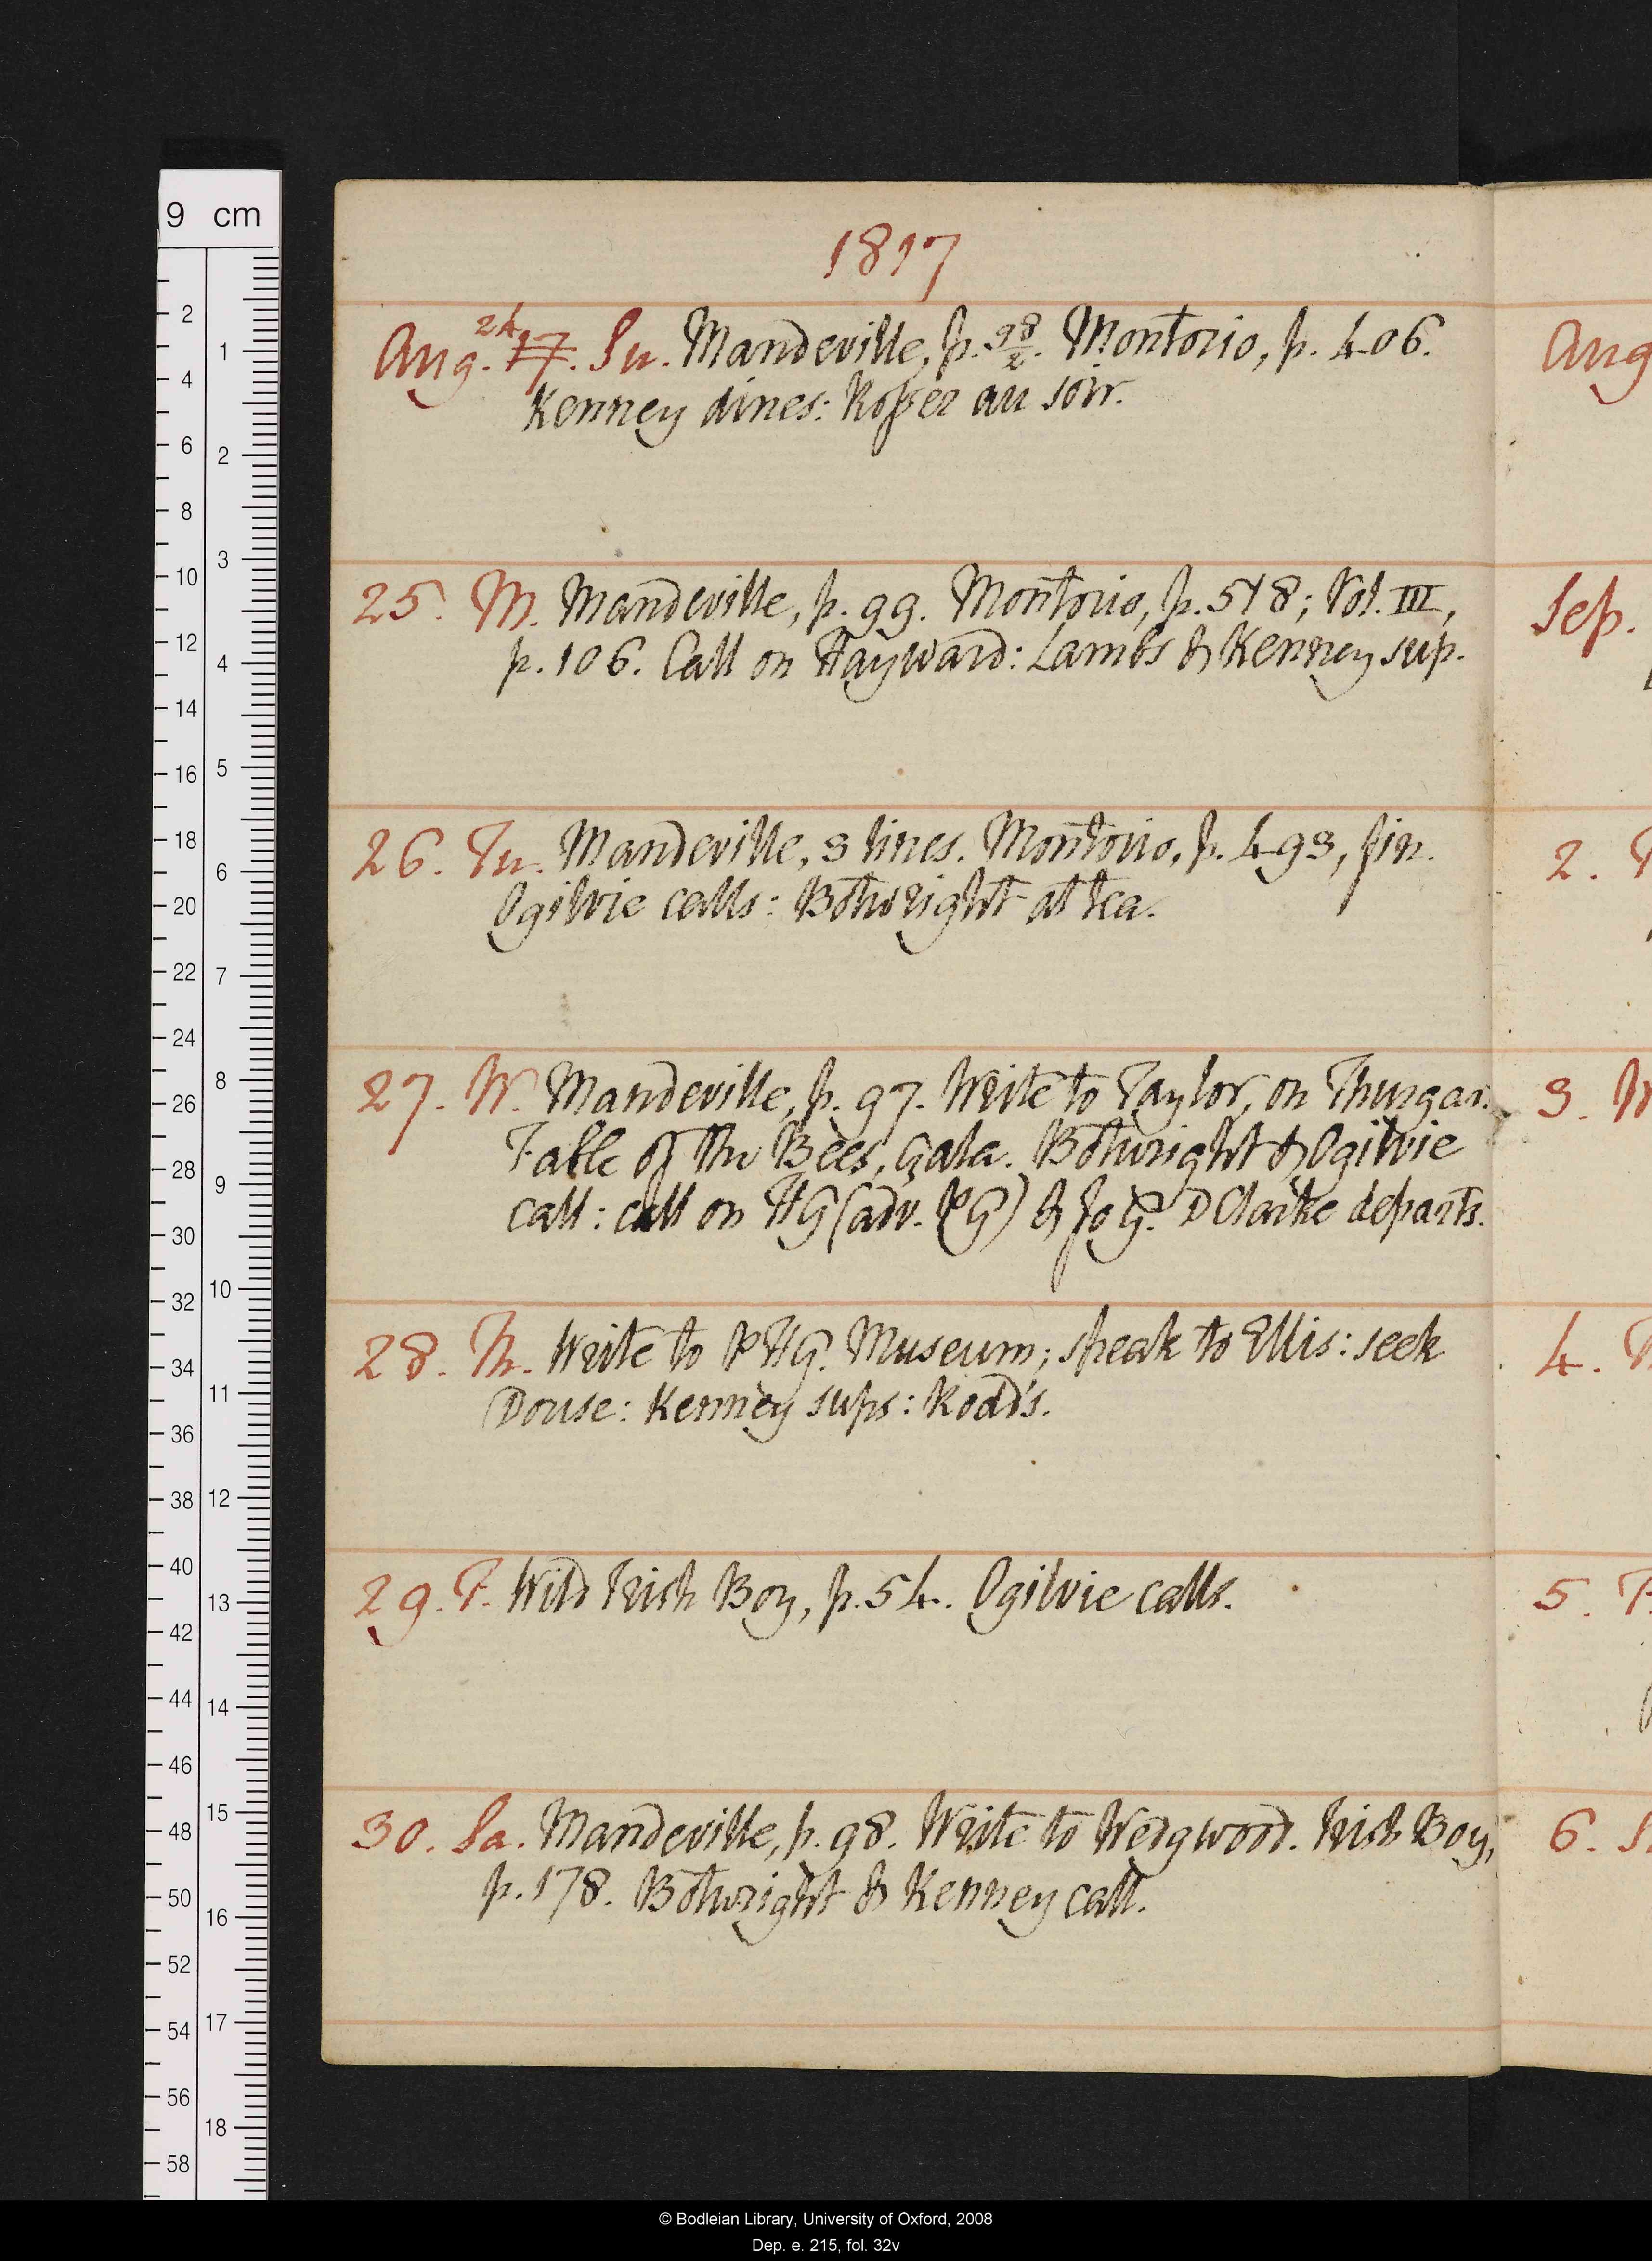 1817
Aug. 24 17. Su. Mandeville, p. 98/2. Montorio, p. 406.
Kenney dines: Rosser au soir.
25. M. Mandeville, p. 99. Montorio, p. 518; Vol. III,
p. 106. Call on Hayward: Lambs & Kenney sup.
26. Tu. Mandeville, 3 lines. Montorio, p. 493, fin.
Ogilvie calls: Botwright at tea.
27. W. Mandeville, p. 97. Write to Taylor, on Thurgar.
Fable of the Bees, çala. Botwright & Ogilvie
call: call on HG (adv. PG) & Jo G. D Clarke departs.
28. Th. Write to PHG. Museum; speak to Ellis: seek
Douse: Kenney sups: Rodd's.
29. F. Wild Irish Boy, p. 54. Ogilvie calls.
30. Sa. Mandeville, p. 98. Write to Wedgwood. Irish Boy,
p. 178. Botwright & Kenney call.
Aug
Sep.
2.
3.
4.
5.
6.
9 cm
2
4
6
8
10
12
14
16
18
20
22
24
26
28
30
32
34
36
38
40
42
44
46
48
50
52
54
56
58
1
2
3
4
5
6
7
8
9
10
11
12
13
14
15
16
17
18
© Bodleian Library, University of Oxford, 2008
Dep. e. 215, fol. 32v